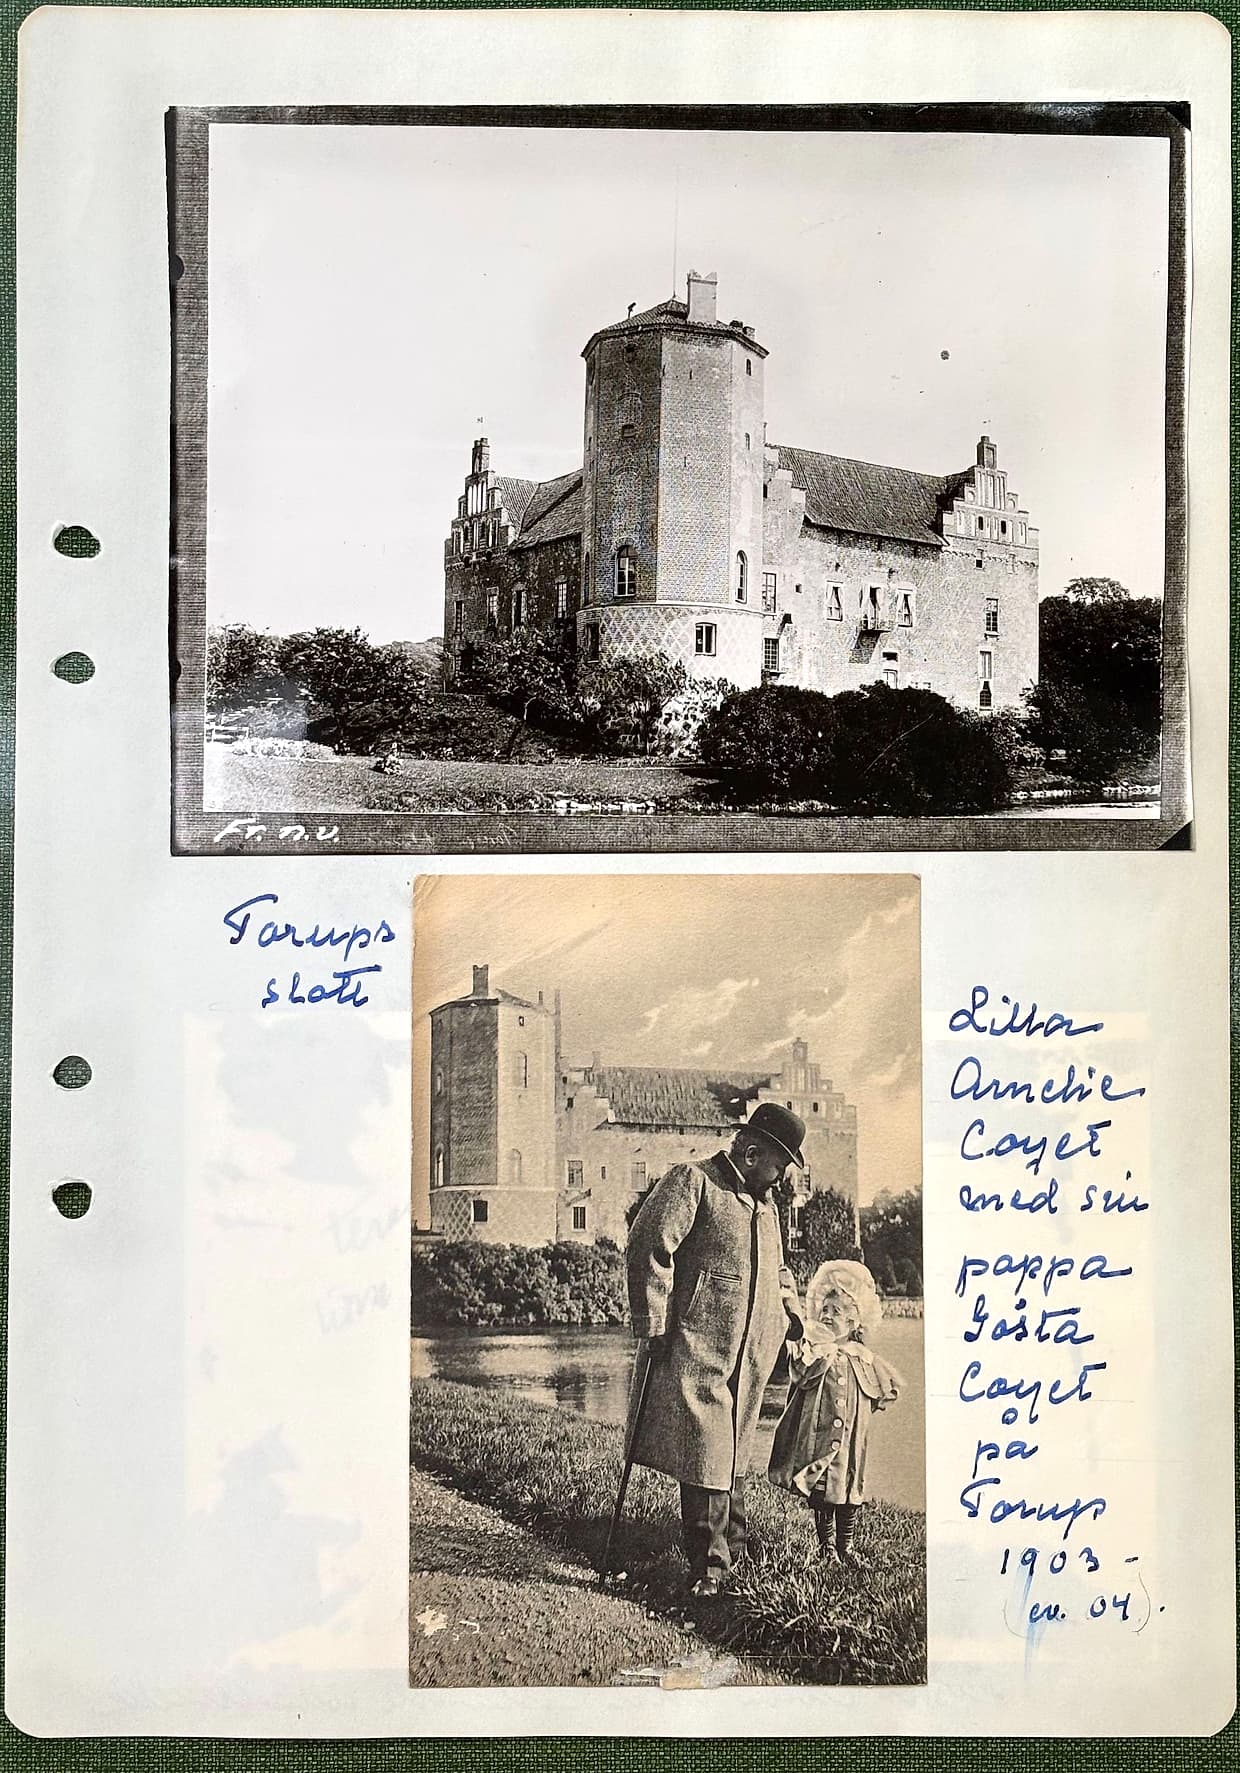 Fr. n.v.
Torups
slott
Lilla
Amelie
Coyet
med sin
pappa
Gösta
Coyet
på
Torup
1903 -
(ev. 04).